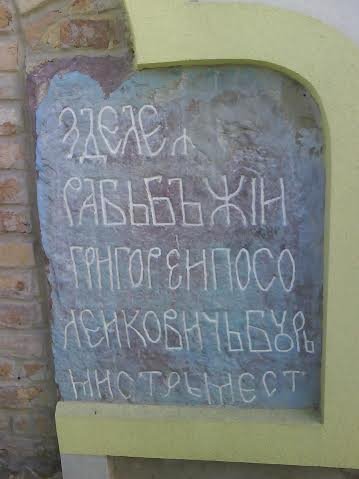 ЗДЕЛЕ Я
РАБЬБЪ ЖІН
ГРИГОРЕИ ПОСО
ЛЕИКОВИЧЬ БꙋРЬ
МИСТРЬ МЕСТ